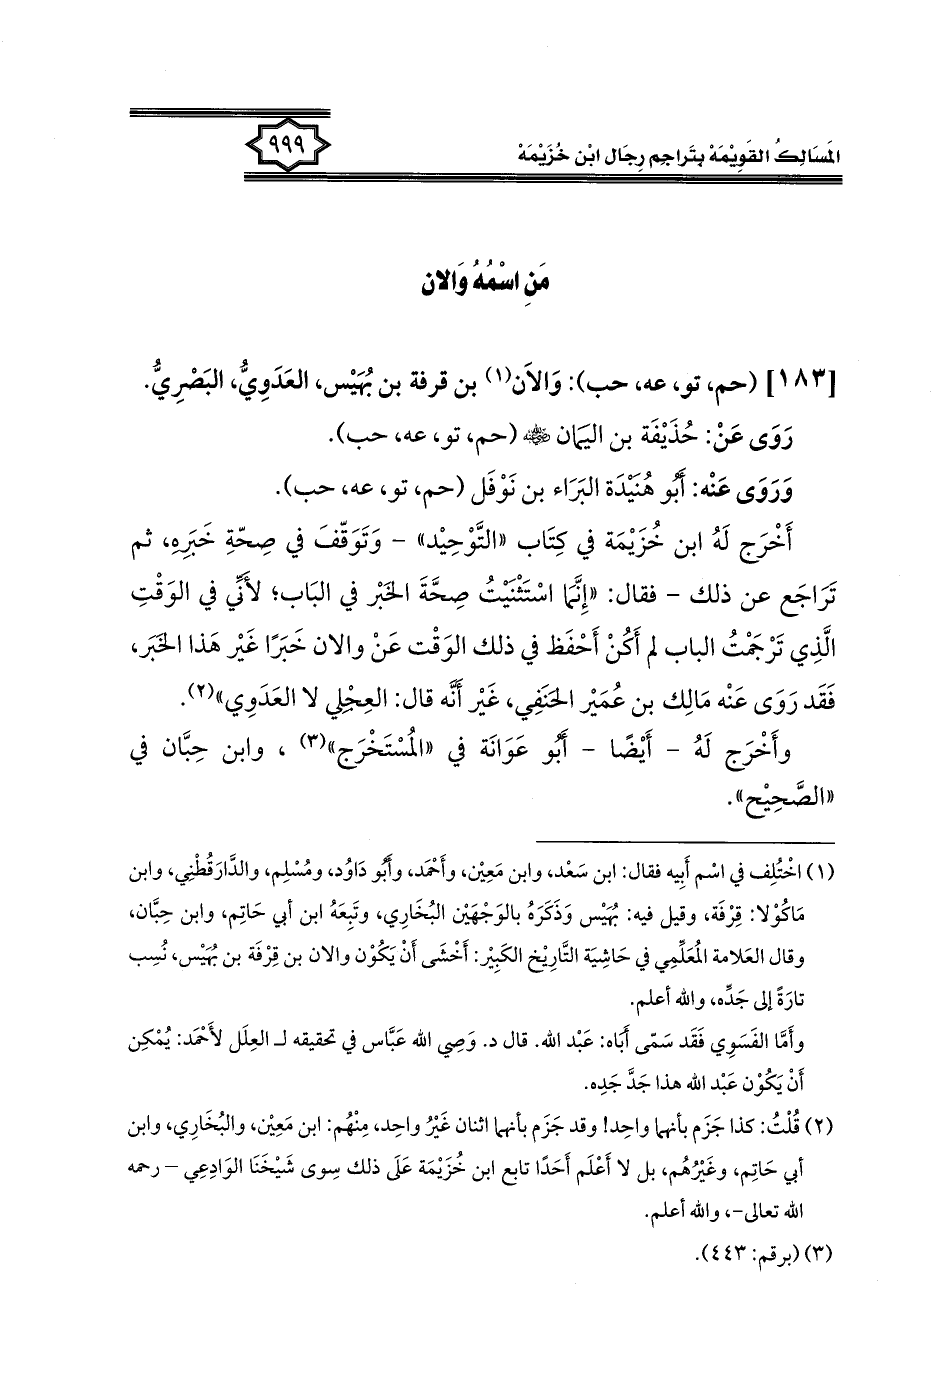 المَسَالِكُ القَوِيْمَة بِتَرَاجِمِ رِجَالِ ابْنِ خُزَيْمَة
٩٩٩
مَنِ اسْمُهُ وَالان
[١٨٣] (حم، تو، عه، حب): وَالاَن(١) بن قرفة بن بُهَيْس، العَدَوِيُّ، البَصْرِيُّ.
رَوَى عَنْ: حُذَيْفَة بن اليَمَان ﵁ (حم، تو، عه، حب).
وَرَوَى عَنْه: أَبُو هُنَيْدَة البَرَاء بن نَوْفَل (حم، تو، عه، حب).
أَخْرَج لَهُ ابن خُزَيْمَة في كِتَاب «التَّوْحِيْد» – وَتَوَقَّفَ في صِحَّةِ خَبَرِهِ، ثم
تَرَاجَع عن ذلك – فقال: «إِنَّمَا اسْتَثْنَيْتُ صِحَّةَ الخَبْر في البَاب؛ لأَنِّي في الوَقْتِ
الَّذِي تَرْجَمْتُ الباب لم أَكُنْ أَحْفَظ في ذلك الوَقْت عَنْ والان خَبَرًا غَيْر هَذا الخَبَر،
فَقَد رَوَى عَنْه مَالِك بن عُمَيْر الحَنَفِي، غَيْر أَنَّه قال: العِجْلِي لا العَدَوِي»(٢).
وأَخْرَج لَهُ – أَيْضًا – أَبُو عَوَانَة في «المُسْتَخْرَج»(٣)، وابن حِبَّان في
«الصَّحِيْح».
(١) اخْتُلِف في اسْم أَبِيه فقال: ابن سَعْد، وابن مَعِيْن، وأَحْمَد، وأَبُو دَاوُد، ومُسْلِم، والدَّارَقُطْنِي، وابن
مَاكُوْلا: قِرْفَة، وقيل فيه: بُهَيْس وَذَكَرَهُ بالوَجْهَيْن البُخَاري، وتَبِعَهُ ابن أبي حَاتِم، وابن حِبَّان،
وقال العَلامة المُعَلِّمِي في حَاشِيَة التَّارِيْخ الكَبِيْر: أَخْشَى أَنْ يَكُوْن والان بن قِرْفَة بن بُهَيْس، نُسِب
تارَةً إلى جَدِّه، والله أعلم.
وأَمَّا الفَسَوِي فَقَد سَمّى أَبَاه: عَبْد الله. قال د. وَصِي الله عَبَّاس في تحقيقه لـ العِلَل لأَحْمَد: يُمْكِن
أَنْ يَكُوْن عَبْد الله هذا جَدَّ جَدِه.
(٢) قُلْتُ: كذا جَزَم بأنهما واحِد! وقد جَزَم بأنهما اثنان غَيْرُ واحِد، مِنْهُم: ابن مَعِيْن، والبُخَاري، وابن
أبي حَاتِم، وغَيْرُهُم، بل لا أَعْلَم أَحَدًا تابع ابن خُزَيْمَة عَلَى ذلك سِوى شَيْخَنَا الوَادِعِي – رحمه
الله تعالى–، والله أعلم.
(٣) (برقم: ٤٤٣).